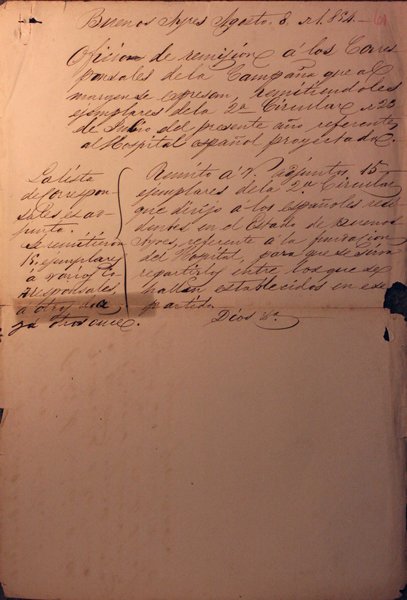 Buenos Ayres Agosto 8 de 1.854.
Oficios de remision á los Corres
ponsales de la Campaña que al
margen se espresan, remitiendoles
ejemplares de la 2ª Circular
de Julio del presente año referente
al Hospital español proyectado.
La lista
de Corres pon-
sales es ad-
junta.
Se remitieron
15 ejemplares
á varios Co-
rresponsales,
á otros
y á otros once.
Remito á V. adjuntos 15
ejemplares de la 2ª Circular
que dirijo á los españoles resi
dentes en el Estado de Buenos
Ayres, referente á la fundacion
del Hospital, para que se sirva
repartirlos entre los que se
hallan establecidos en ese
partido.
Dios &ª